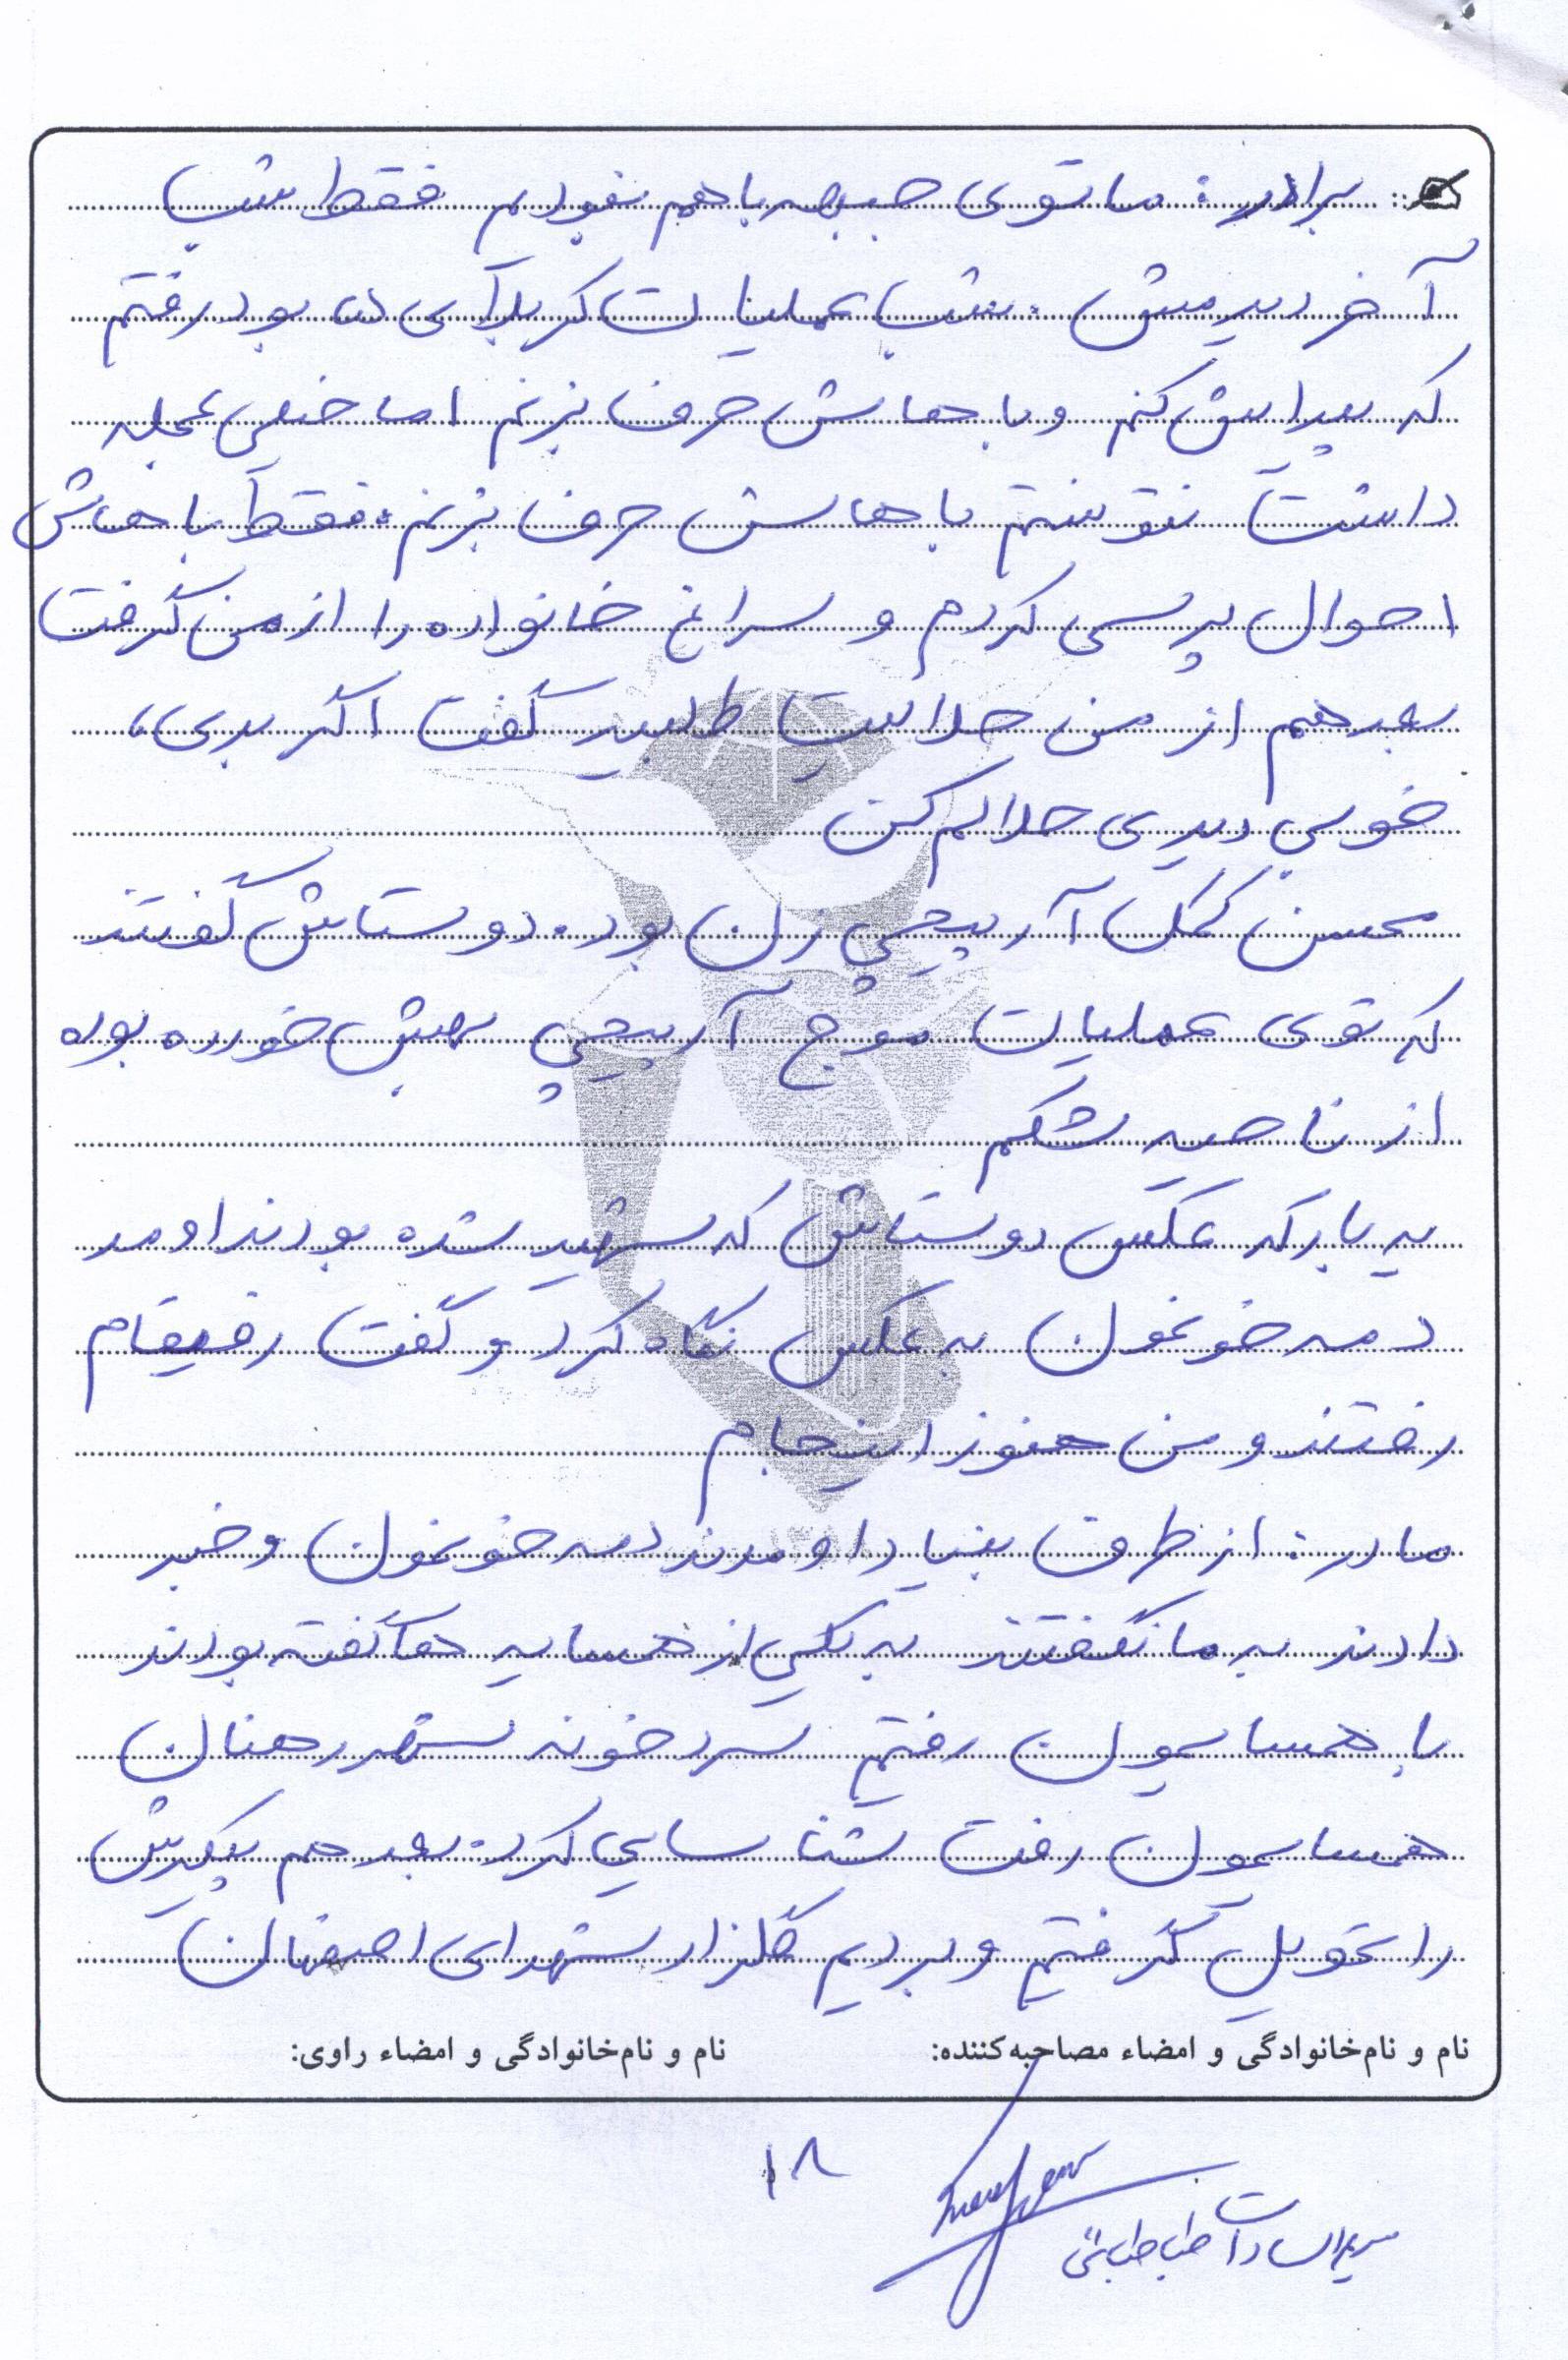 برادر: ما توی جبهه با هم نبودیم فقط شب
آخر دیدمش. شب عملیات کربلای ۵ بود رفتم
که پیدایش کنم و باهاش حرف بزنم اما خیلی عجله
داشت نتونستم باهاش حرف بزنم. فقط باهاش
احوال پرسی کردم و سراغ خانواده را از من گرفت
بعد هم از من حلالیت طلبید گفت اگر بدی،
خوبی دیدی حلالم کن
محسن کمک آرپیچی زن بود. دوستاش گفتند
که توی عملیات موج آرپیچی بهش خورده بوده
از ناحیه شکم
یه بار که عکس دوستاش که شهید شده بودند اومد
دمه خونمون به عکس نگاه کرد و گفت رفیقام
رفتند و من هنوز اینجام
مادر: از طرف بنیاد اومدند دمه خونمون و خبر
دادند به ما نگفتند به یکی از همسایه ها گفته بودند
با همسایمون رفتیم سردخونه
همسایمون رفت شناسایی کرد. بعد هم پیکرش
را تحویل گرفتیم و بردیم گلزار شهدای اصفهان
نام و نام‌خانوادگی و امضاء مصاحبه‌کننده: نام و نام‌خانوادگی و امضاء راوی:
۱۸
السادات طباطبائی